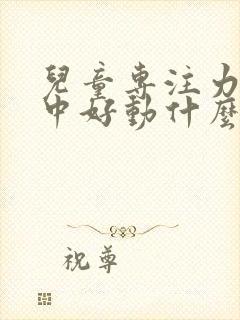 兒童專注力
中好動什麼
祝尊